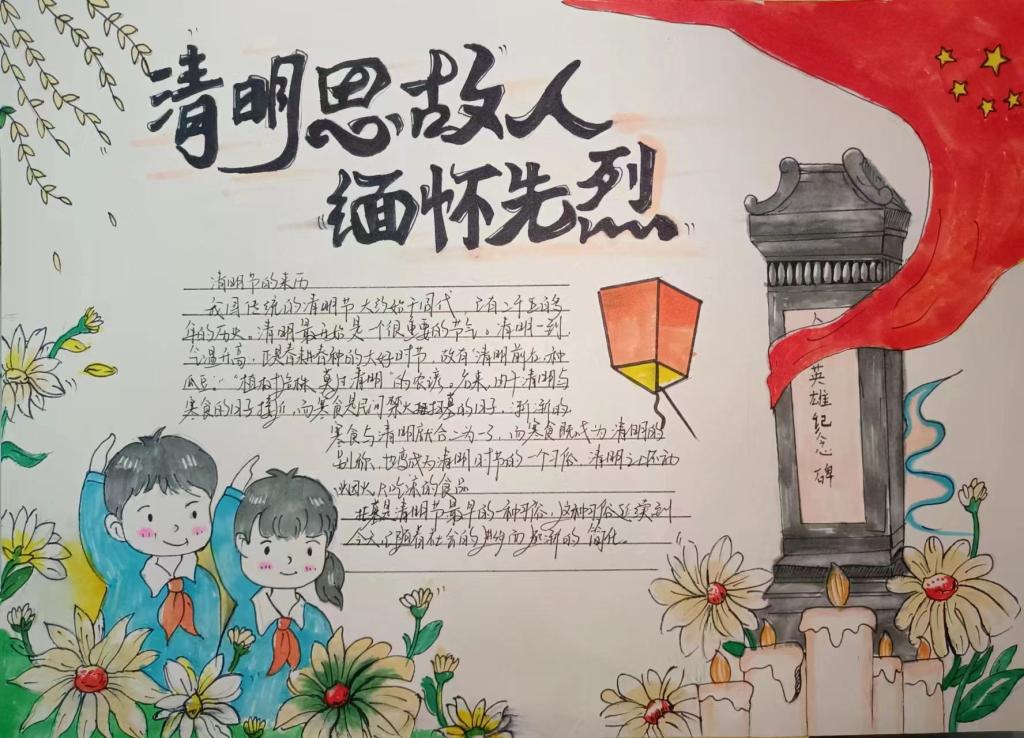 清明思故人
缅怀先烈
清明节的来历
我国传统的清明节大约始于周代，已有二千五百多
年的历史。清明最开始是一个很重要的节气。清明一到
气温升高，正是春耕春种的大好时节，故有“清明前后，种
瓜豆”。“植树造林，莫过清明”的农谚。后来，由于清明与
寒食的日子接近，而寒食是民间禁火扫墓的日子，渐渐的
寒食与清明就合二为一了，而寒食既成为清明的
别称，也变成为清明时节的一个习俗，清明之日不动
烟火只吃凉的食品
扫墓是清明节最早的一种习俗，这种习俗延续到
今天，已随着社会的进步而逐渐的简化。
英雄纪念碑